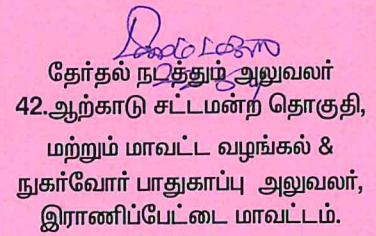 தேர்தல் நடத்தும் அலுவலர்
42.ஆற்காடு சட்டமன்ற தொகுதி,
மற்றும் மாவட்ட வழங்கல் &
நுகர்வோர் பாதுகாப்பு அலுவலர்,
இராணிப்பேட்டை மாவட்டம்.